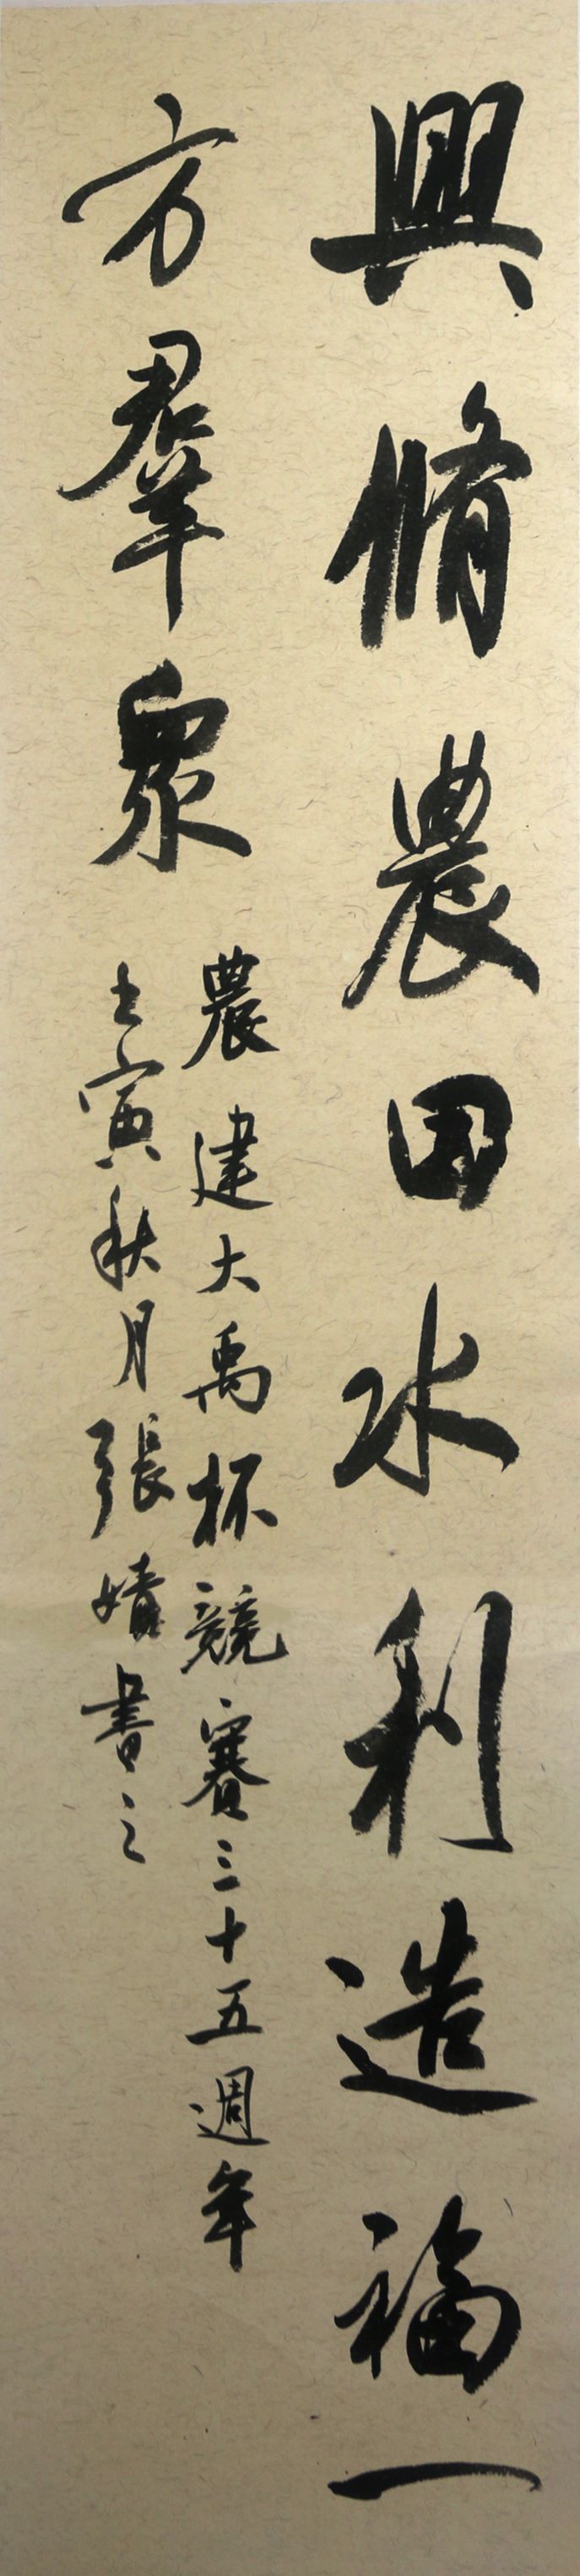 興脩農田水利造福一
方羣眾
農建大禹杯競賽三十五週年
壬寅秋月張婧書之